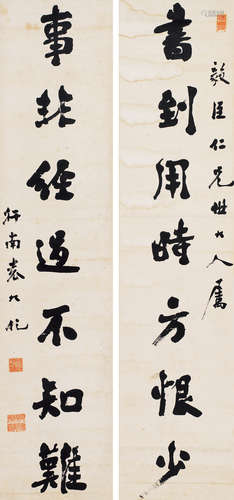 毅臣仁兄世大人属
書到用時方恨少
事非經過不知難
軒南袁大化